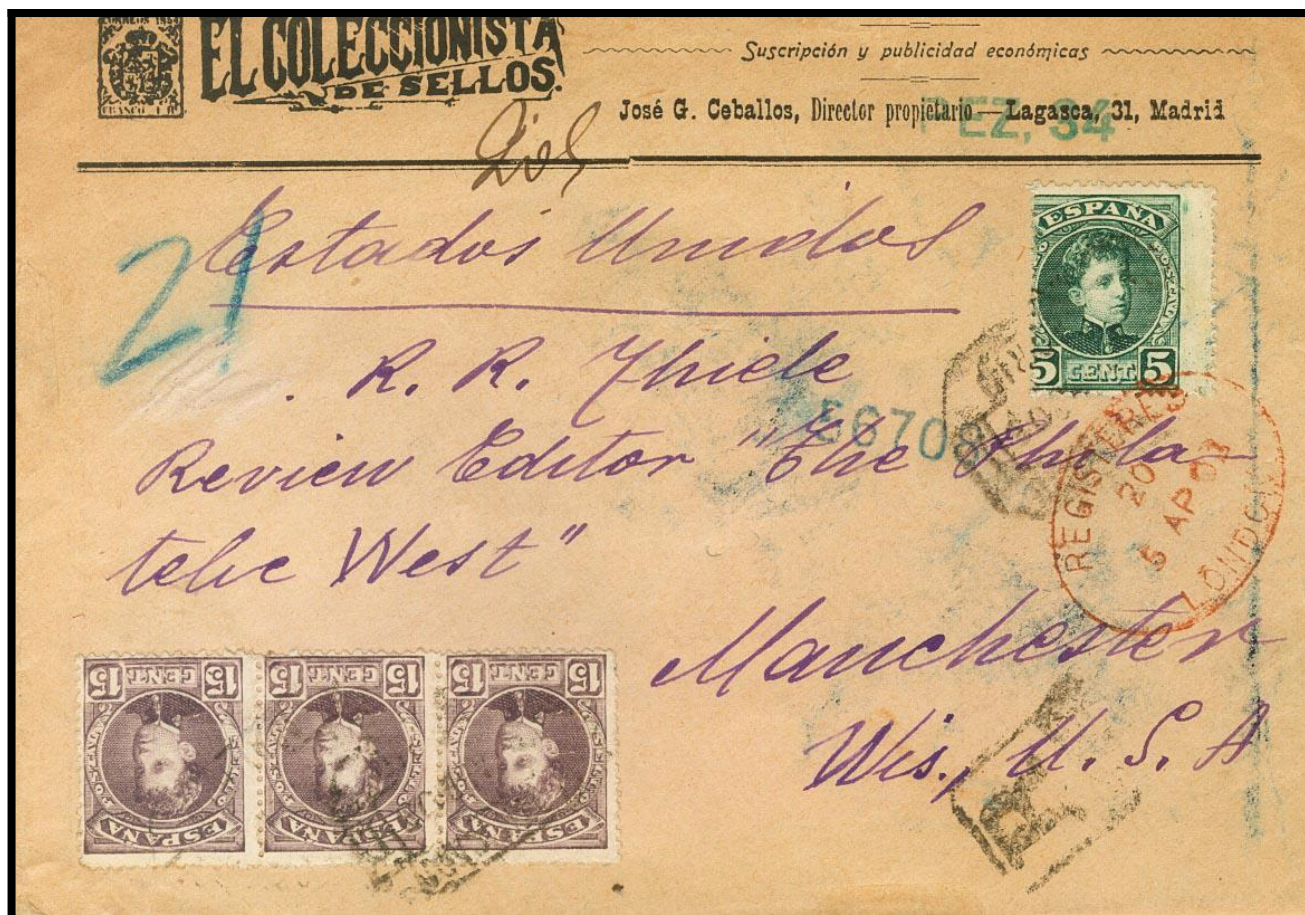 CORREOS 1854
FRANCO 1 R
EL COLECCIONISTA
DE SELLOS.
Suscripción y publicidad económicas
José G. Ceballos, Director propietario — Lagasca, 31, Madrid
PEZ, 34
21
Estados Unidos
R. R. Thiele
Review Editor "The Phila-
telic West"
Manchester
Wis., U. S. A
56708
ESPAÑA
5 CENT. 5
REGISTERED
20
5 AP 03
LONDON
15 CENT 15
ESPAÑA
15 CENT 15
ESPAÑA
15 CENT 15
ESPAÑA
R